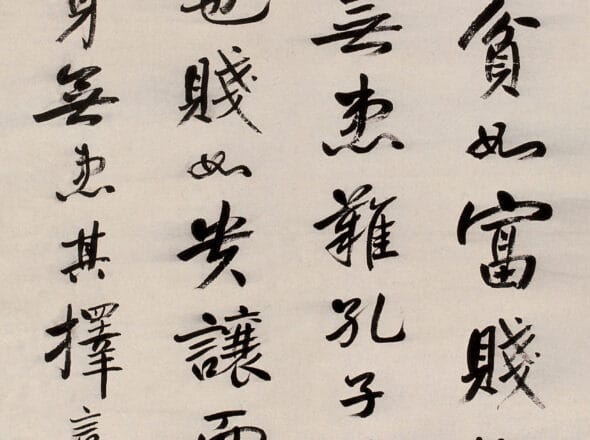 貧如富賤
無患難孔子
也賤如貴讓而
身無患其擇言